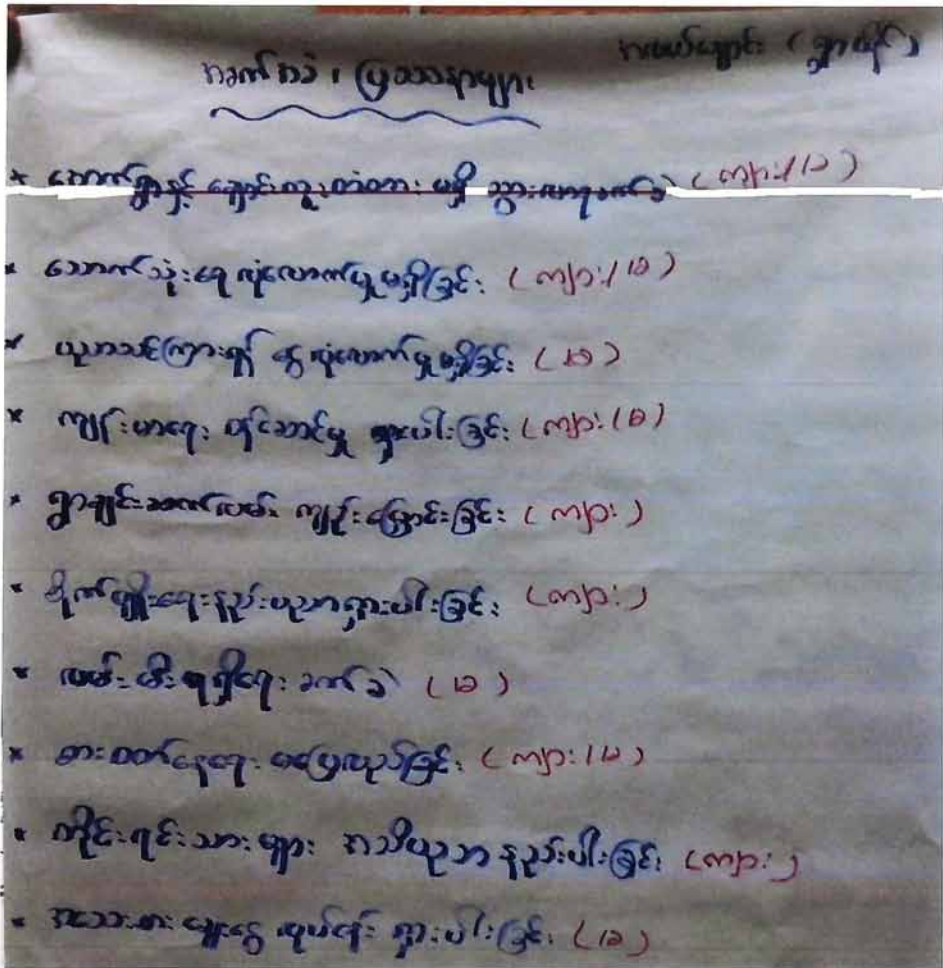 အခက်အခဲ၊ ပြဿနာများ
* အောက်ရွာနှင့် ချောင်းကူးတံတား မရှိ သွားလာရခက်ခဲ (ကျား/မ)
* သောက်သုံးရေ လုံလောက်မှု မရှိခြင်း (ကျား/မ)
* ပညာသင်ကြားရန် ငွေ လုံလောက်မှု မရှိခြင်း (မ)
* ကျန်းမာရေး ဝန်ဆောင်မှု ရှားပါးခြင်း (ကျား/မ)
* ရွာချင်းဆက်လမ်း ကျဉ်းမြောင်းခြင်း (ကျား)
* စိုက်ပျိုးရေးနည်းပညာရှားပါးခြင်း (ကျား)
* လမ်း မီး ရရှိရေး ခက်ခဲ (မ)
* စားဝတ်နေရေး မပြေလည်ခြင်း (ကျား/မ)
* တိုင်းရင်းသားများ အသိပညာ နည်းပါးခြင်း (ကျား)
* အသေးစား ချေးငွေ လုပ်ငန်း ရှားပါးခြင်း (မ)